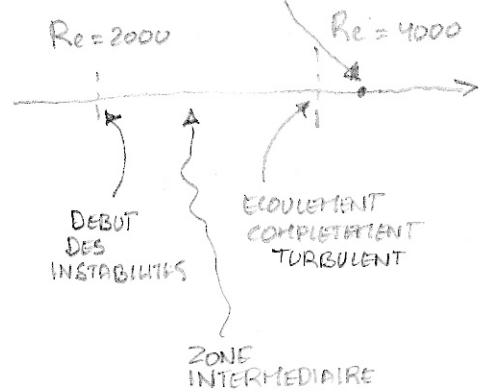 Re = 2000
Re = 4000
DEBUT
DES
INSTABILITES
ECOULEMENT
COMPLETEMENT
TURBULENT
ZONE
INTERMEDIAIRE